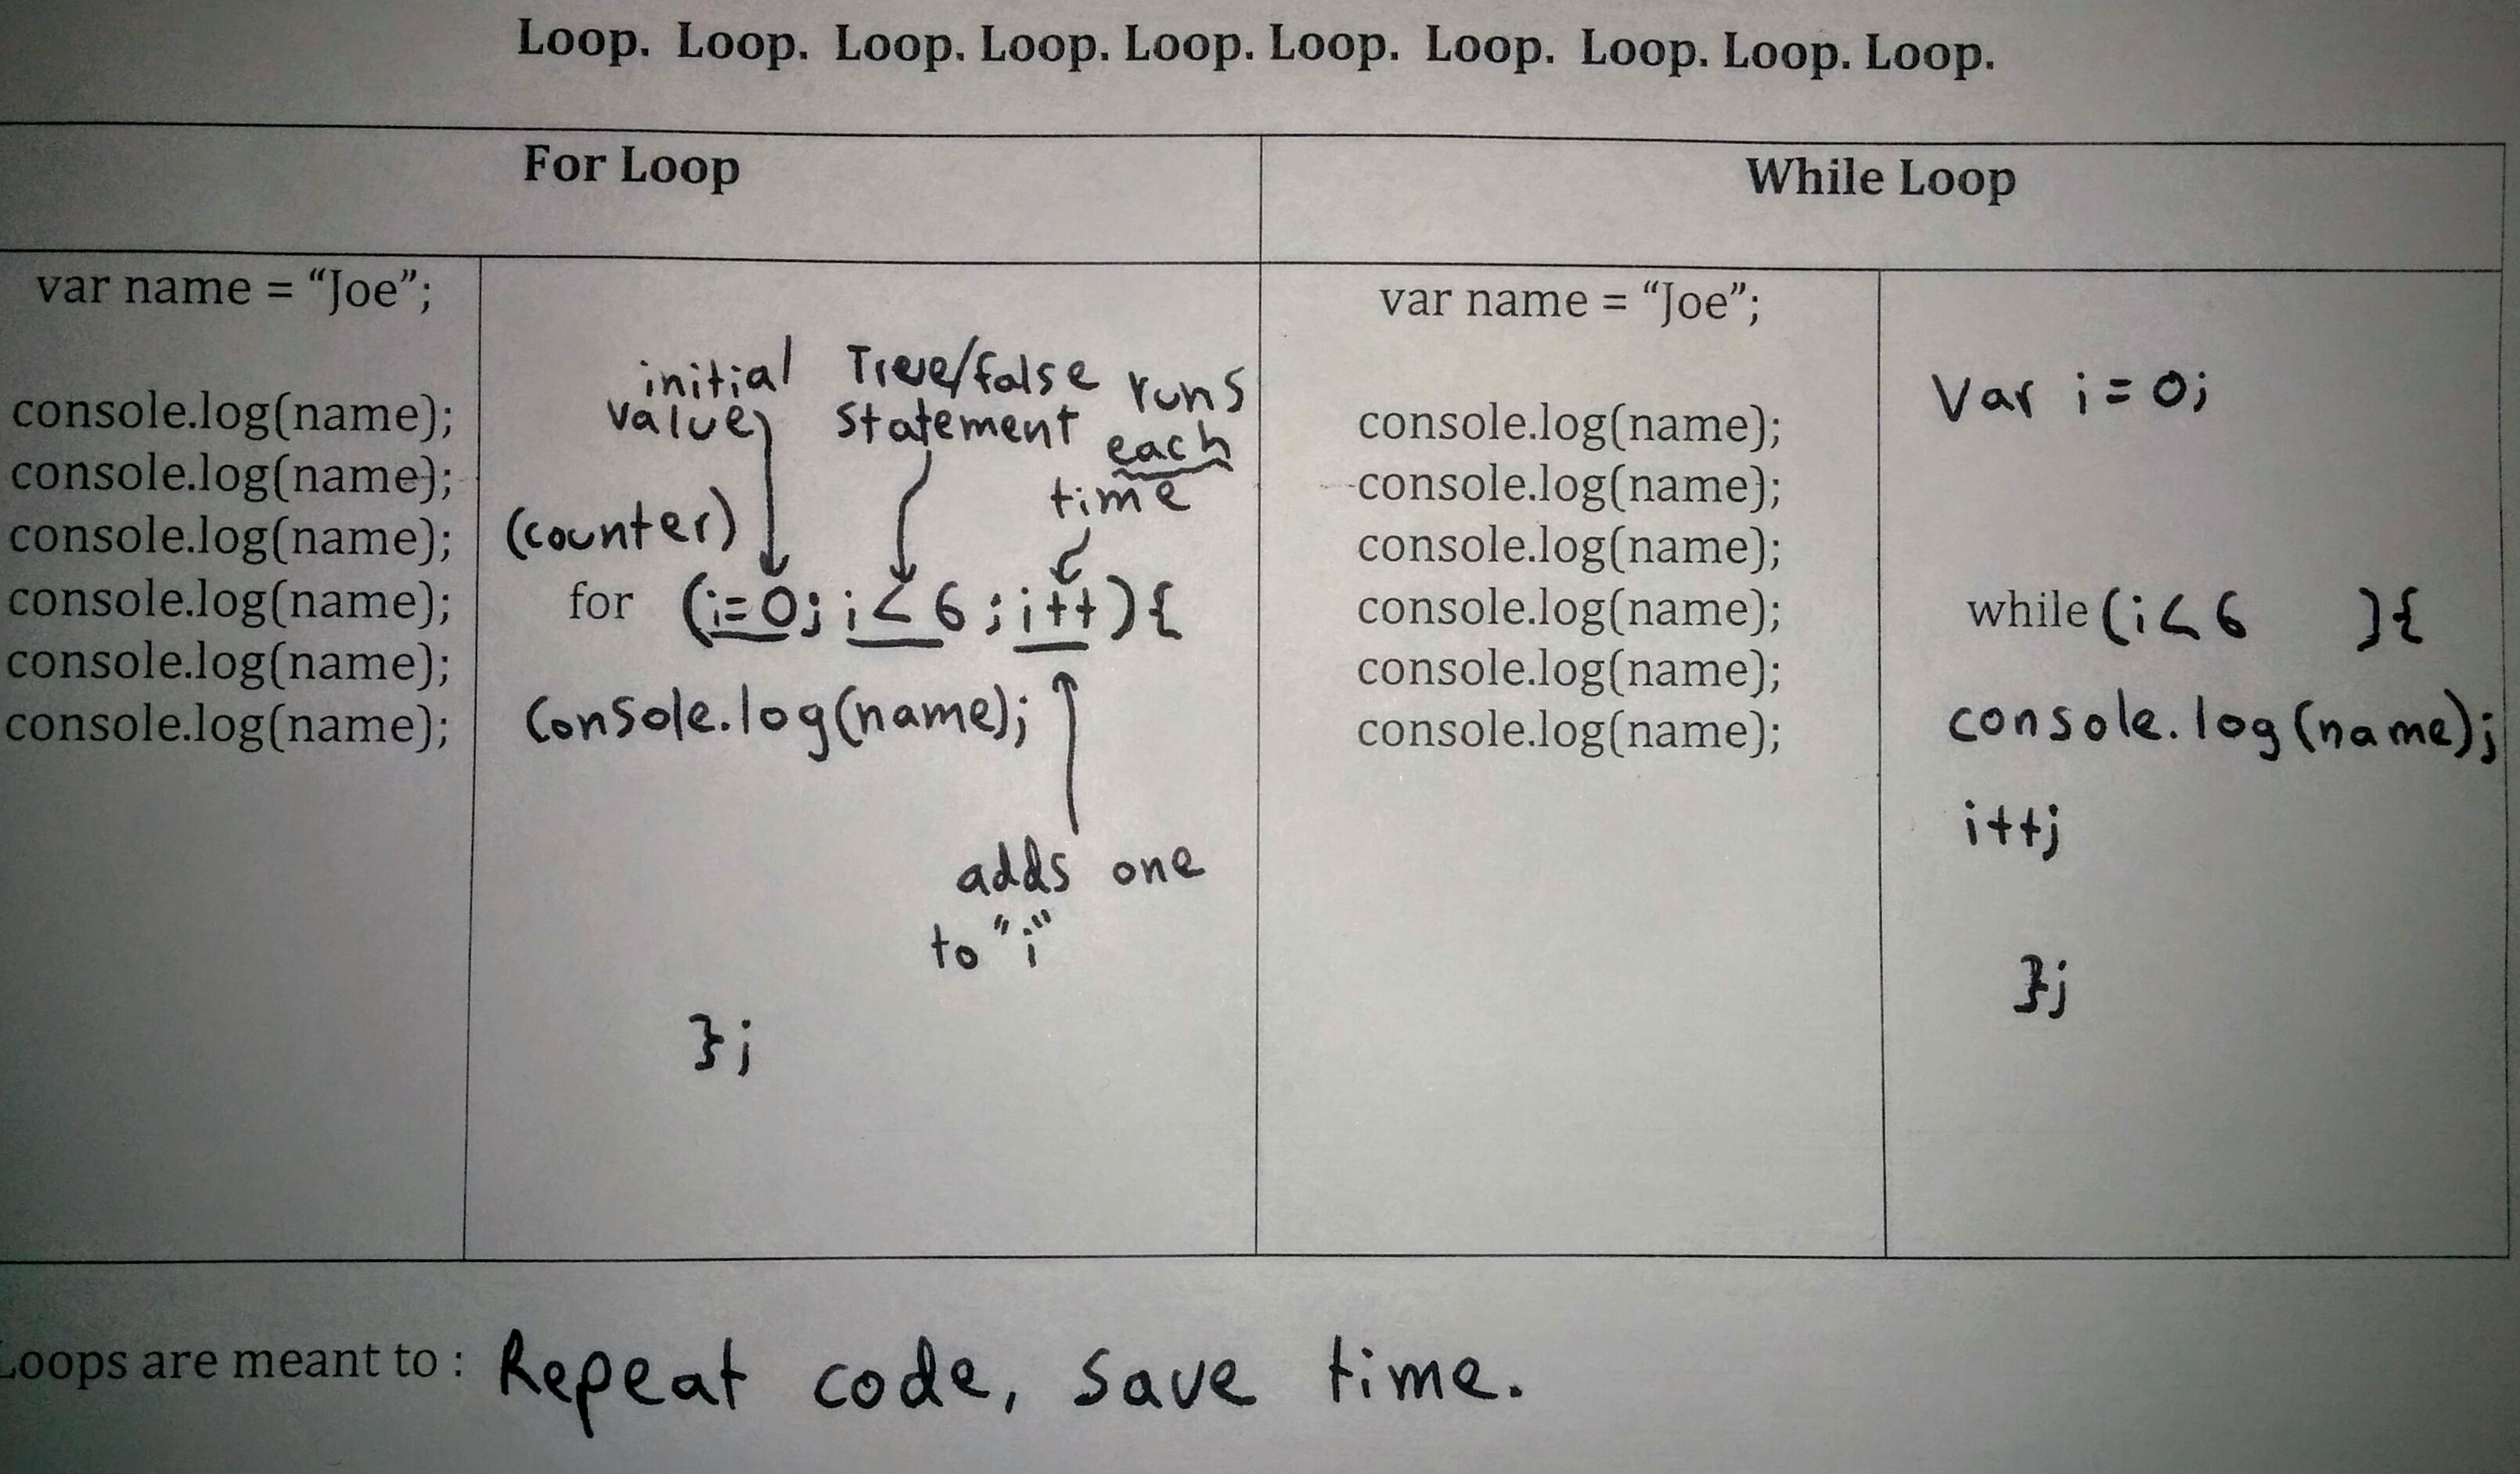 Loop. Loop. Loop. Loop. Loop. Loop. Loop. Loop. Loop. Loop.
For Loop
var name = “Joe”;
console.log(name);
console.log(name);
console.log(name);
console.log(name);
console.log(name);
console.log(name);
initial
value
True/false
statement
runs
each
time
(counter)
for (i=0; i<6; i++){
console.log(name);
adds one
to "i"
};
While Loop
var name = “Joe”;
console.log(name);
console.log(name);
console.log(name);
console.log(name);
console.log(name);
console.log(name);
Var i=0;
while (i<6 ){
console.log(name);
i++;
};
Loops are meant to : Repeat code, save time.